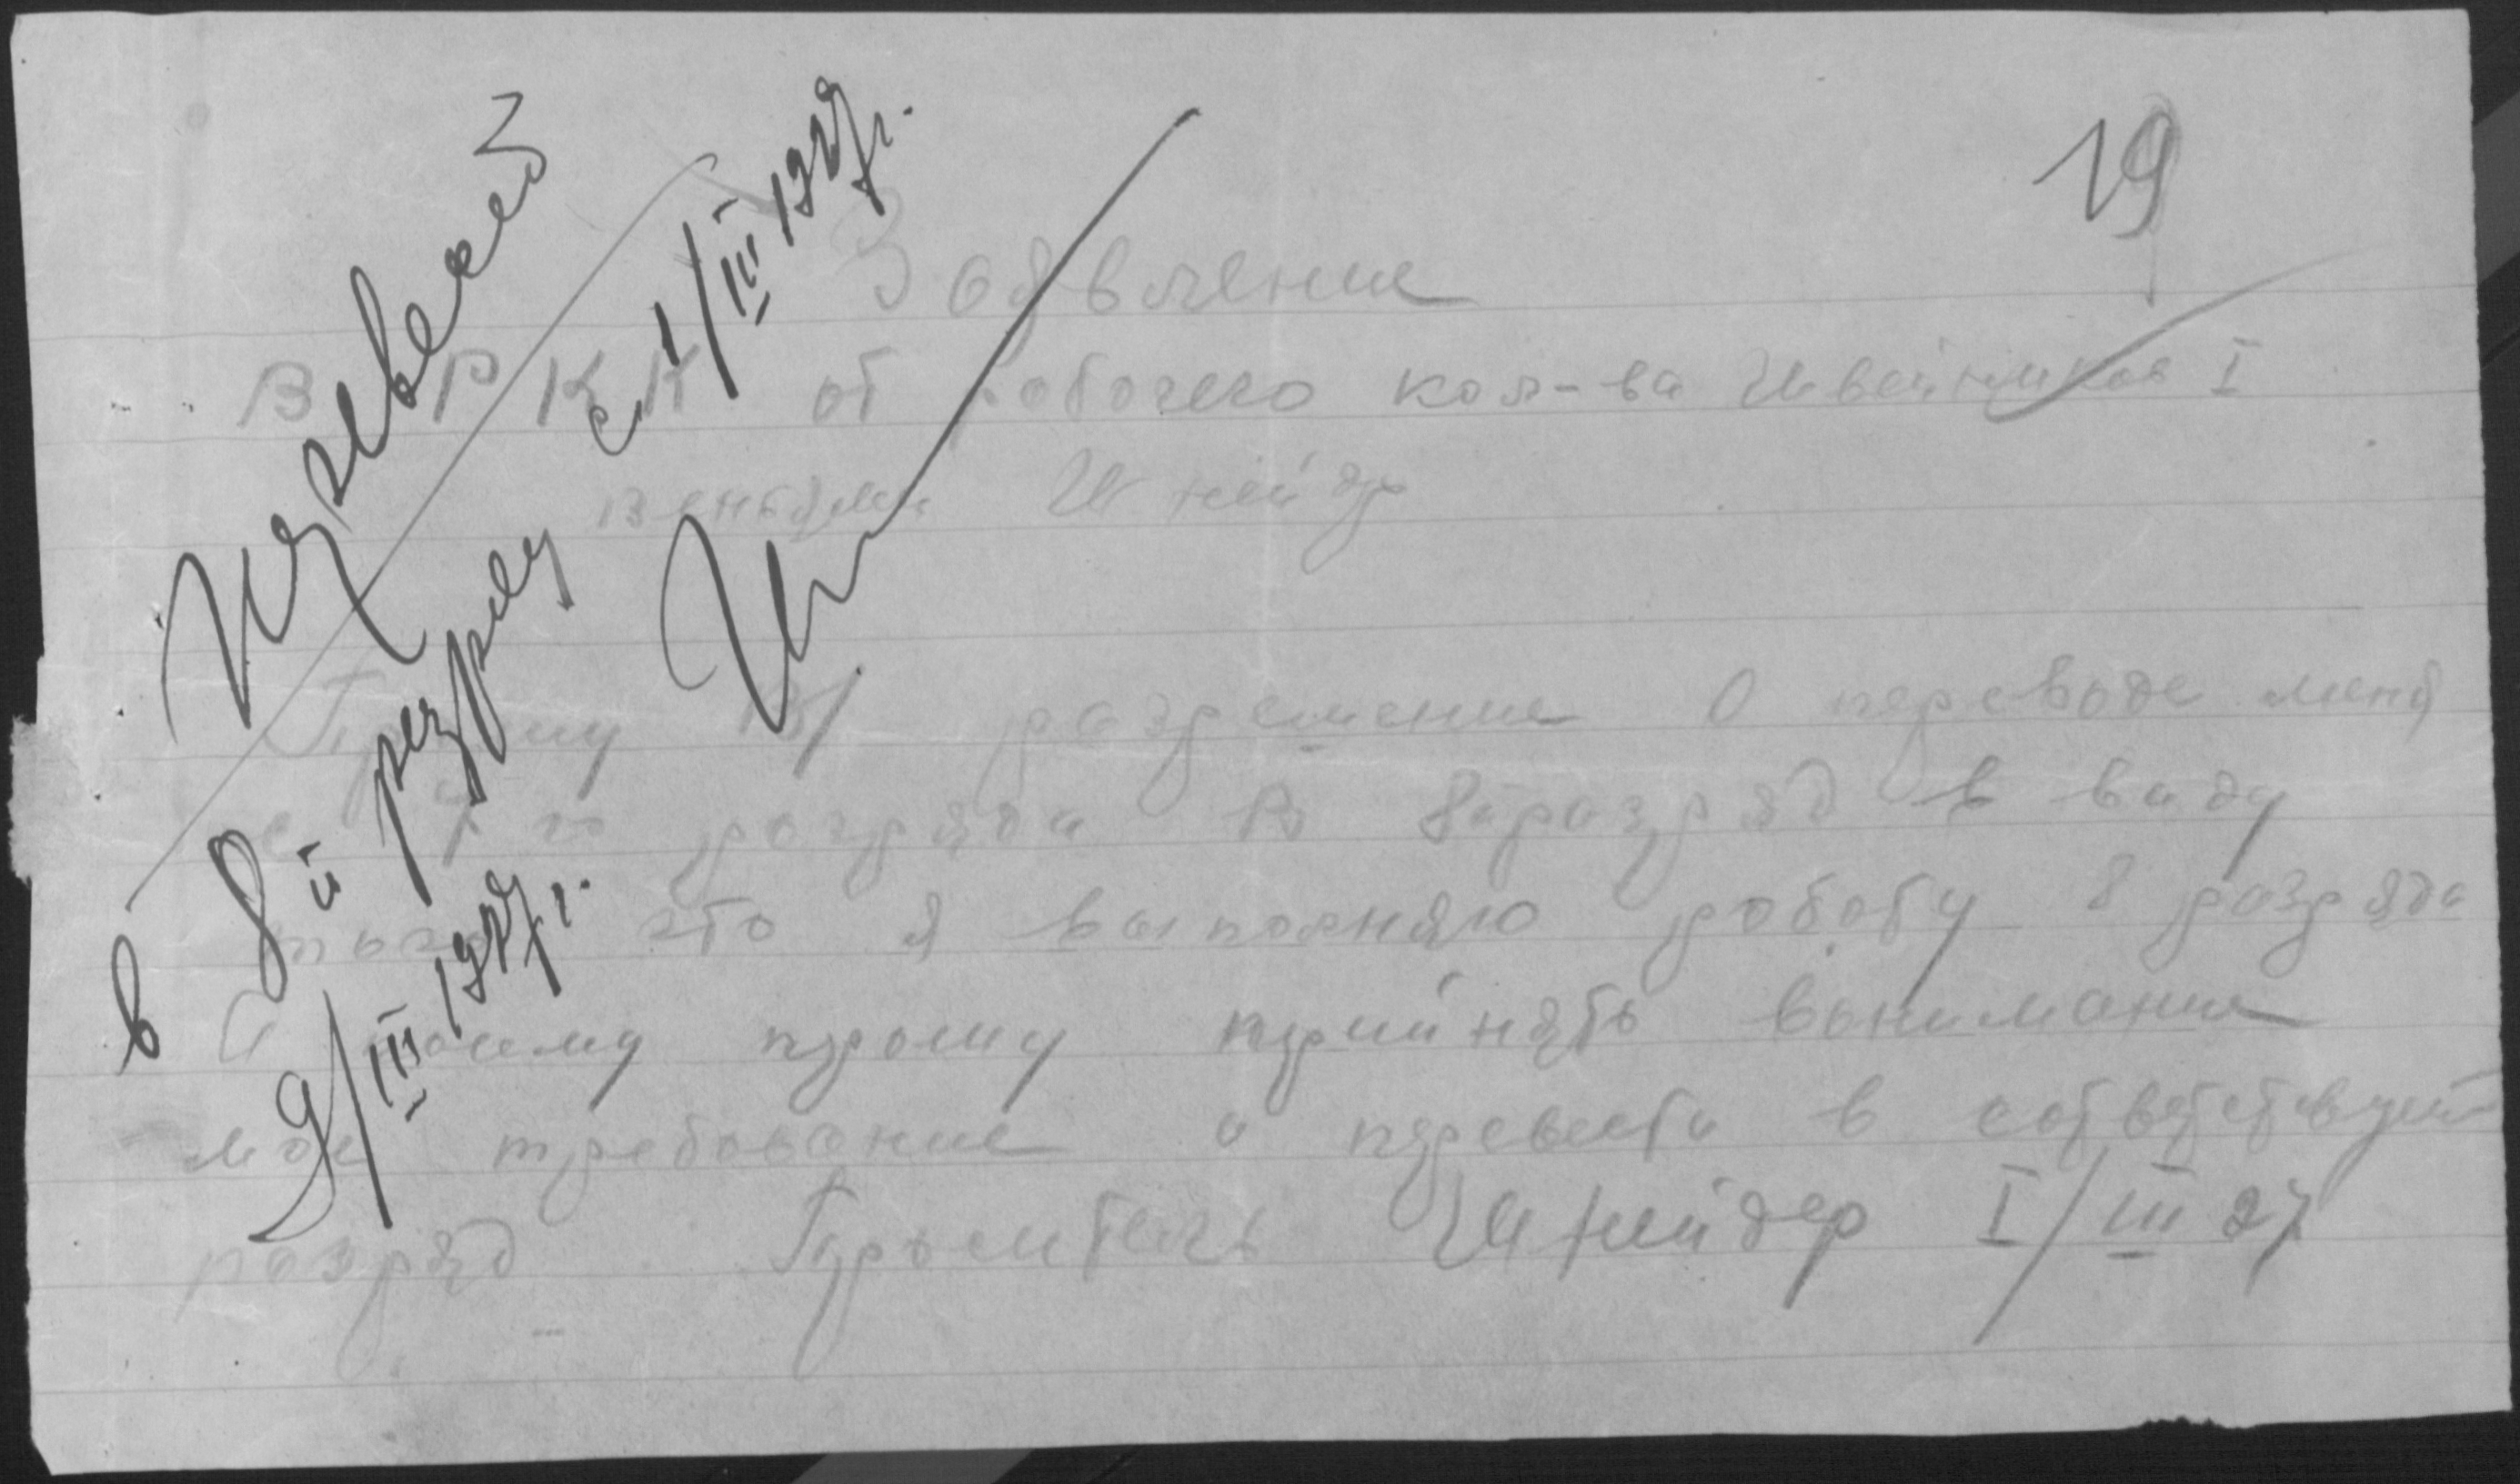 19
Заявление
В РКК от рабочего кол-ва Швейников I
Шнейдер
Прошу В/ разрешение О переводе меня
с 7 го разряда в 8й разряд в виду
того что я выполняю работу 8 разряда
прошу прийнять вынимание
мое требование и перевести в сотвртствующ
разряд Проситель Шнейдер I/III 27
Перевести
в 8й разряд с 1/III 1927г.
9/III 1927г.